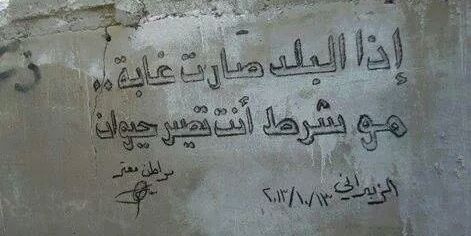 إذا البلد صارت غابة ..
هو شرط أنت تصير حيوان
مواطن معتر
الزبداني ٢٠١٣/١٠/١٣